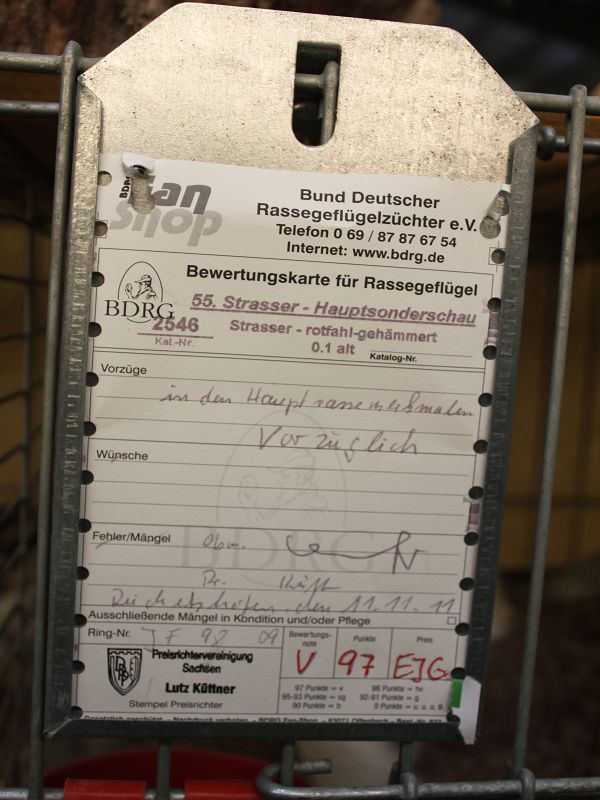 BDRG
Fan
Shop
Bund Deutscher
Rassegeflügelzüchter e.V.
Telefon 0 69 / 87 87 67 54
Internet: www.bdrg.de
Bewertungskarte für Rassegeflügel
BDRG
55. Strasser - Hauptsonderschau
2546 Strasser - rotfahl-gehämmert
Kat.-Nr. 0.1 alt Katalog-Nr.
Vorzüge
in den Hauptrassemerkmalen
Vorzüglich
Wünsche
BDRG
Fehler/Mängel Obm.
Pr.
den 11.11.11
Ausschließende Mängel in Kondition und/oder Pflege
Ring-Nr. 09
Bewertungs-note Punkte Preis
V 97 EJG
Preisrichtervereinigung
Sachsen
Lutz Küttner
Stempel Preisrichter
97 Punkte = v 96 Punkte = hv
95-93 Punkte = sg 92-91 Punkte = g
90 Punkte = b 0 Punkte = u. o. B.